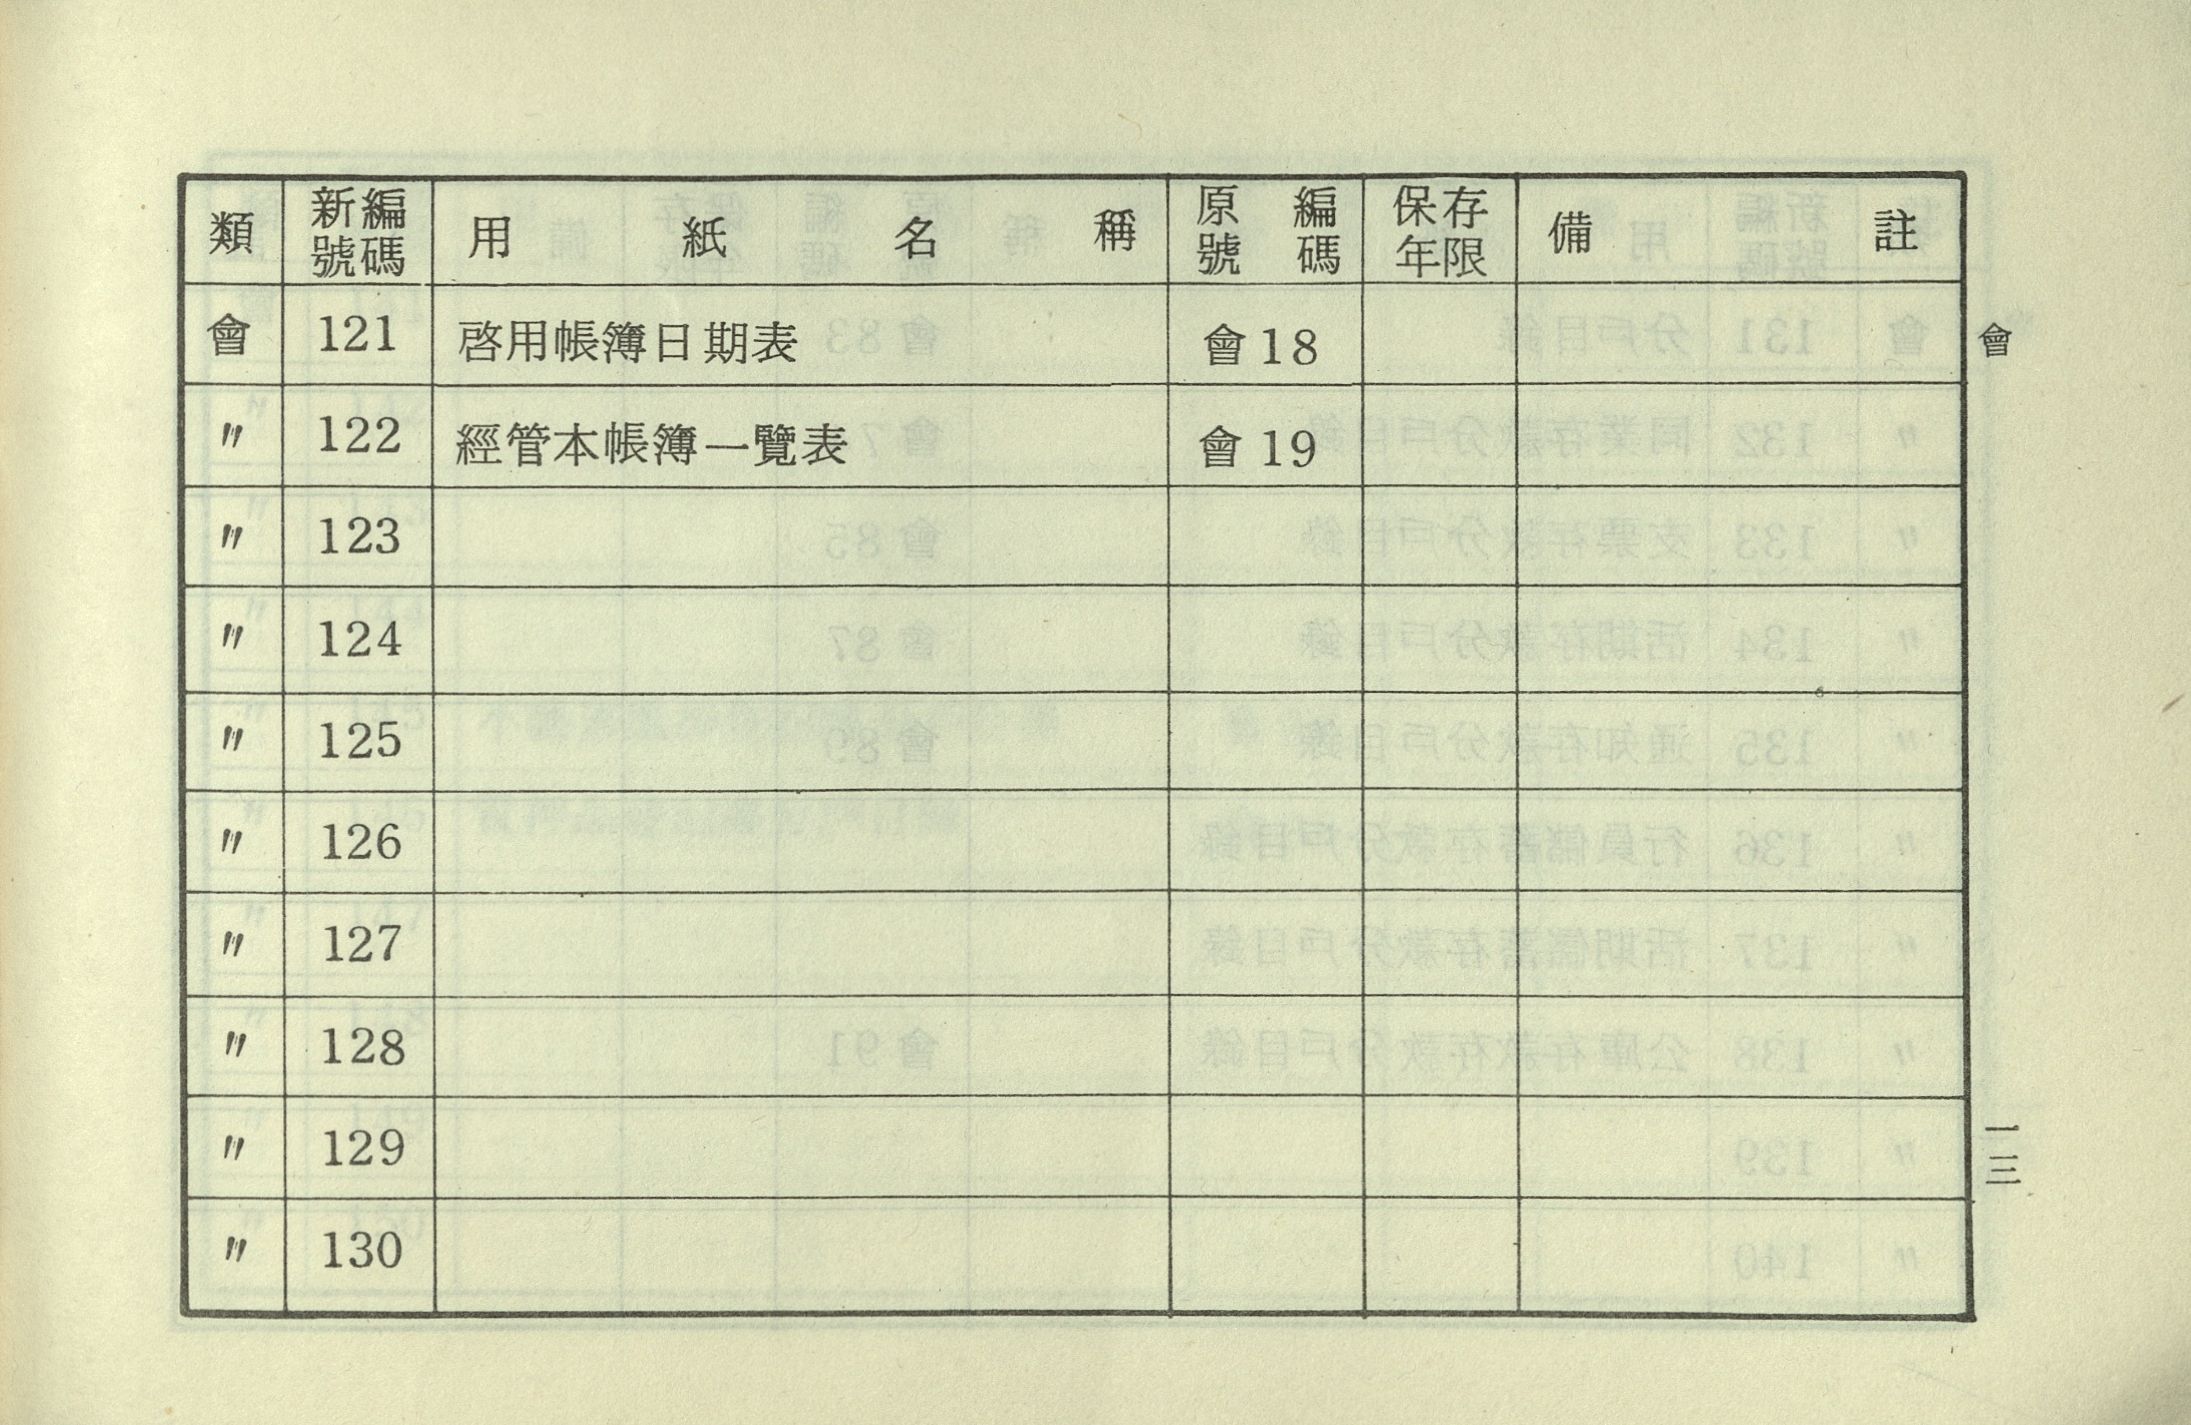 類 新編號碼 用紙名稱 原編號碼 保存年限 備註
會 121 啓用帳簿日期表 會18
〃 122 經管本帳簿一覽表 會19
〃 123
〃 124
〃 125
〃 126
〃 127
〃 128
〃 129
〃 130
會
一三